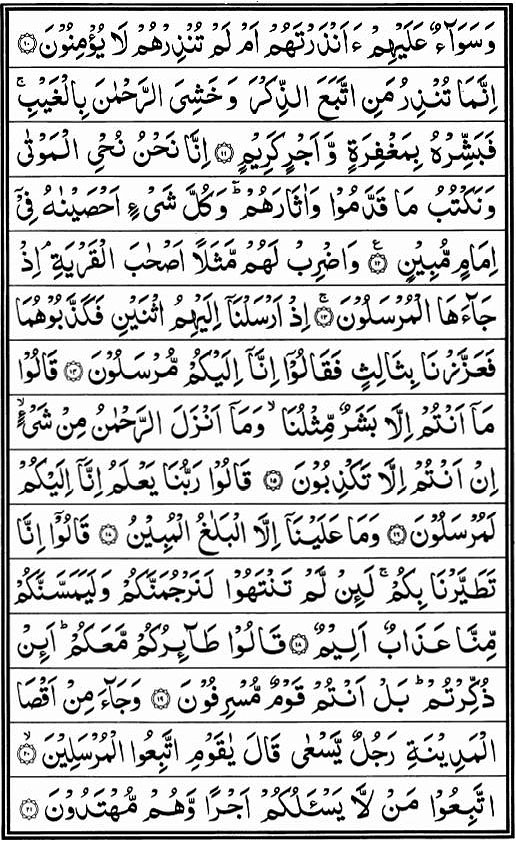 وَسَوَآءٌ عَلَيْهِمْ ءَاَنْذَرْتَهُمْ اَمْ لَمْ تُنْذِرْهُمْ لَا يُؤْمِنُوْنَ ﴿۱۰﴾
اِنَّمَا تُنْذِرُ مَنِ اتَّبَعَ الذِّكْرَ وَخَشِىَ الرَّحْمٰنَ بِالْغَيْبِ ۚ
فَبَشِّرْهُ بِمَغْفِرَةٍ وَّاَجْرٍ كَرِيْمٍ ﴿۱۱﴾ اِنَّا نَحْنُ نُحْىِ الْمَوْتٰى
وَنَكْتُبُ مَا قَدَّمُوْا وَاٰثَارَهُمْ ؕ وَكُلَّ شَىْءٍ اَحْصَيْنٰهُ فِىْٓ
اِمَامٍ مُّبِيْنٍ ﴿۱۲﴾ ع وَاضْرِبْ لَهُمْ مَّثَلًا اَصْحٰبَ الْقَرْيَةِ ۘ اِذْ
جَآءَهَا الْمُرْسَلُوْنَ ﴿۱۳﴾ ۚ اِذْ اَرْسَلْنَاۤ اِلَيْهِمُ اثْنَيْنِ فَكَذَّبُوْهُمَا
فَعَزَّزْنَا بِثَالِثٍ فَقَالُوْۤا اِنَّاۤ اِلَيْكُمْ مُّرْسَلُوْنَ ﴿۱۴﴾ قَالُوْا
مَاۤ اَنْتُمْ اِلَّا بَشَرٌ مِّثْلُنَا ۙ وَمَاۤ اَنْزَلَ الرَّحْمٰنُ مِنْ شَىْءٍ ۙ
اِنْ اَنْتُمْ اِلَّا تَكْذِبُوْنَ ﴿۱۵﴾ قَالُوْا رَبُّنَا يَعْلَمُ اِنَّاۤ اِلَيْكُمْ
لَمُرْسَلُوْنَ ﴿۱۶﴾ وَمَا عَلَيْنَاۤ اِلَّا الْبَلٰغُ الْمُبِيْنُ ﴿۱۷﴾ قَالُوْۤا اِنَّا
تَطَيَّرْنَا بِكُمْ ۚ لَئِنْ لَّمْ تَنْتَهُوْا لَنَرْجُمَنَّكُمْ وَلَيَمَسَّنَّكُمْ
مِّنَّا عَذَابٌ اَلِيْمٌ ﴿۱۸﴾ قَالُوْا طَآئِرُكُمْ مَّعَكُمْ ؕ اَئِنْ
ذُكِّرْتُمْ ؕ بَلْ اَنْتُمْ قَوْمٌ مُّسْرِفُوْنَ ﴿۱۹﴾ وَجَآءَ مِنْ اَقْصَا
الْمَدِيْنَةِ رَجُلٌ يَّسْعٰى قَالَ يٰقَوْمِ اتَّبِعُوا الْمُرْسَلِيْنَ ﴿۲۰﴾ ۙ
اتَّبِعُوْا مَنْ لَّا يَسْئَلُكُمْ اَجْرًا وَّهُمْ مُّهْتَدُوْنَ ﴿۲۱﴾